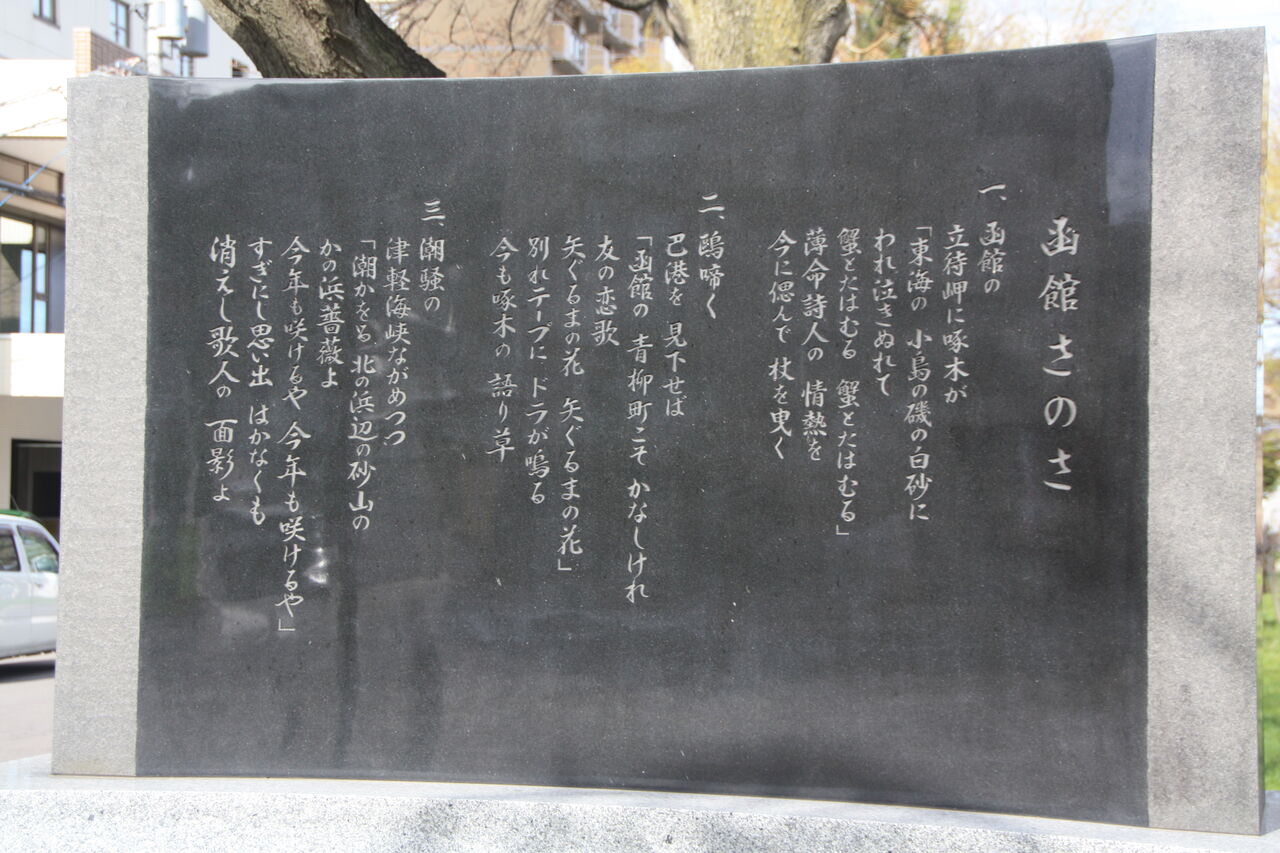 函館さのさ
一、函館の
立待岬に啄木が
「東海の 小島の磯の白砂に
われ泣きぬれて
蟹とたはむる 蟹とたはむる」
薄命詩人の 情熱を
今に偲んで 杖を曳く
二、鴎啼く
巴港を 見下せば
「函館の 青柳町こそ かなしけれ
友の恋歌
矢ぐるまの花 矢ぐるまの花」
別れテープに ドラが鳴る
今も啄木の 語り草
三、潮騒の
津軽海峡ながめつつ
「潮かをる 北の浜辺の砂山の
かの浜薔薇よ
今年も咲けるや 今年も咲けるや」
すぎにし思い出 はかなくも
消えし歌人の 面影よ